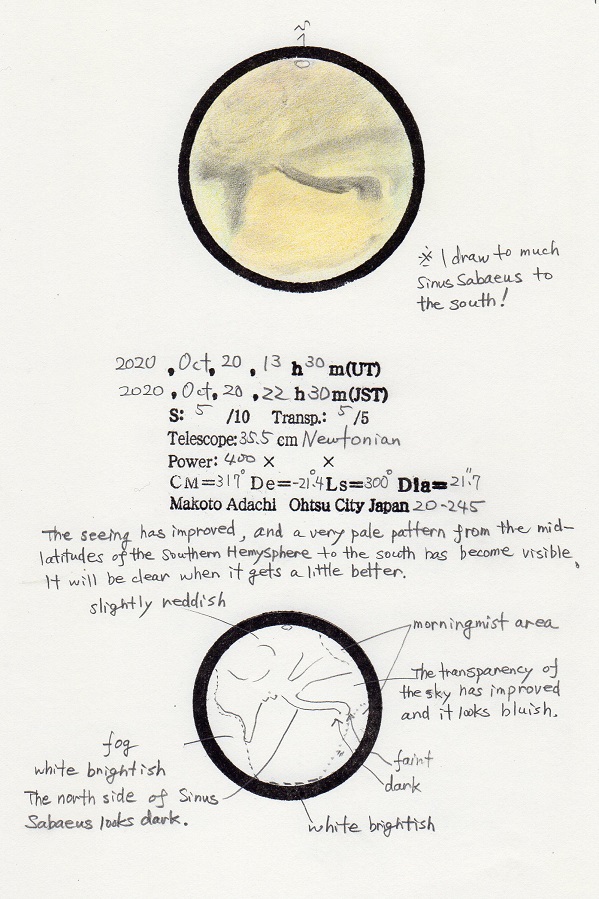 ※ I draw to much
Sinus Sabaeus to
the south!
2020 , Oct, 20 , 13 h 30 m(UT)
2020 , Oct, 20 , 22 h 30 m(JST)
S: 5 /10 Transp.: 5 /5
Telescope: 35.5 cm Newtonian
Power: 400 × ×
CM=317° De=-21°.4 Ls=300° Dia=21".7
Makoto Adachi Ohtsu City Japan 20-245
The seeing has improved, and a very pale pattern from the mid-
latitudes of the Southern Hemysphere to the south has become visible.
It will be clear when it gets a little better.
slightly reddish
morningmist area
The transparency of
the sky has improved
and it looks bluish.
fog
white brightish
The north side of Sinus
Sabaeus looks dark.
faint
dark
white brightish